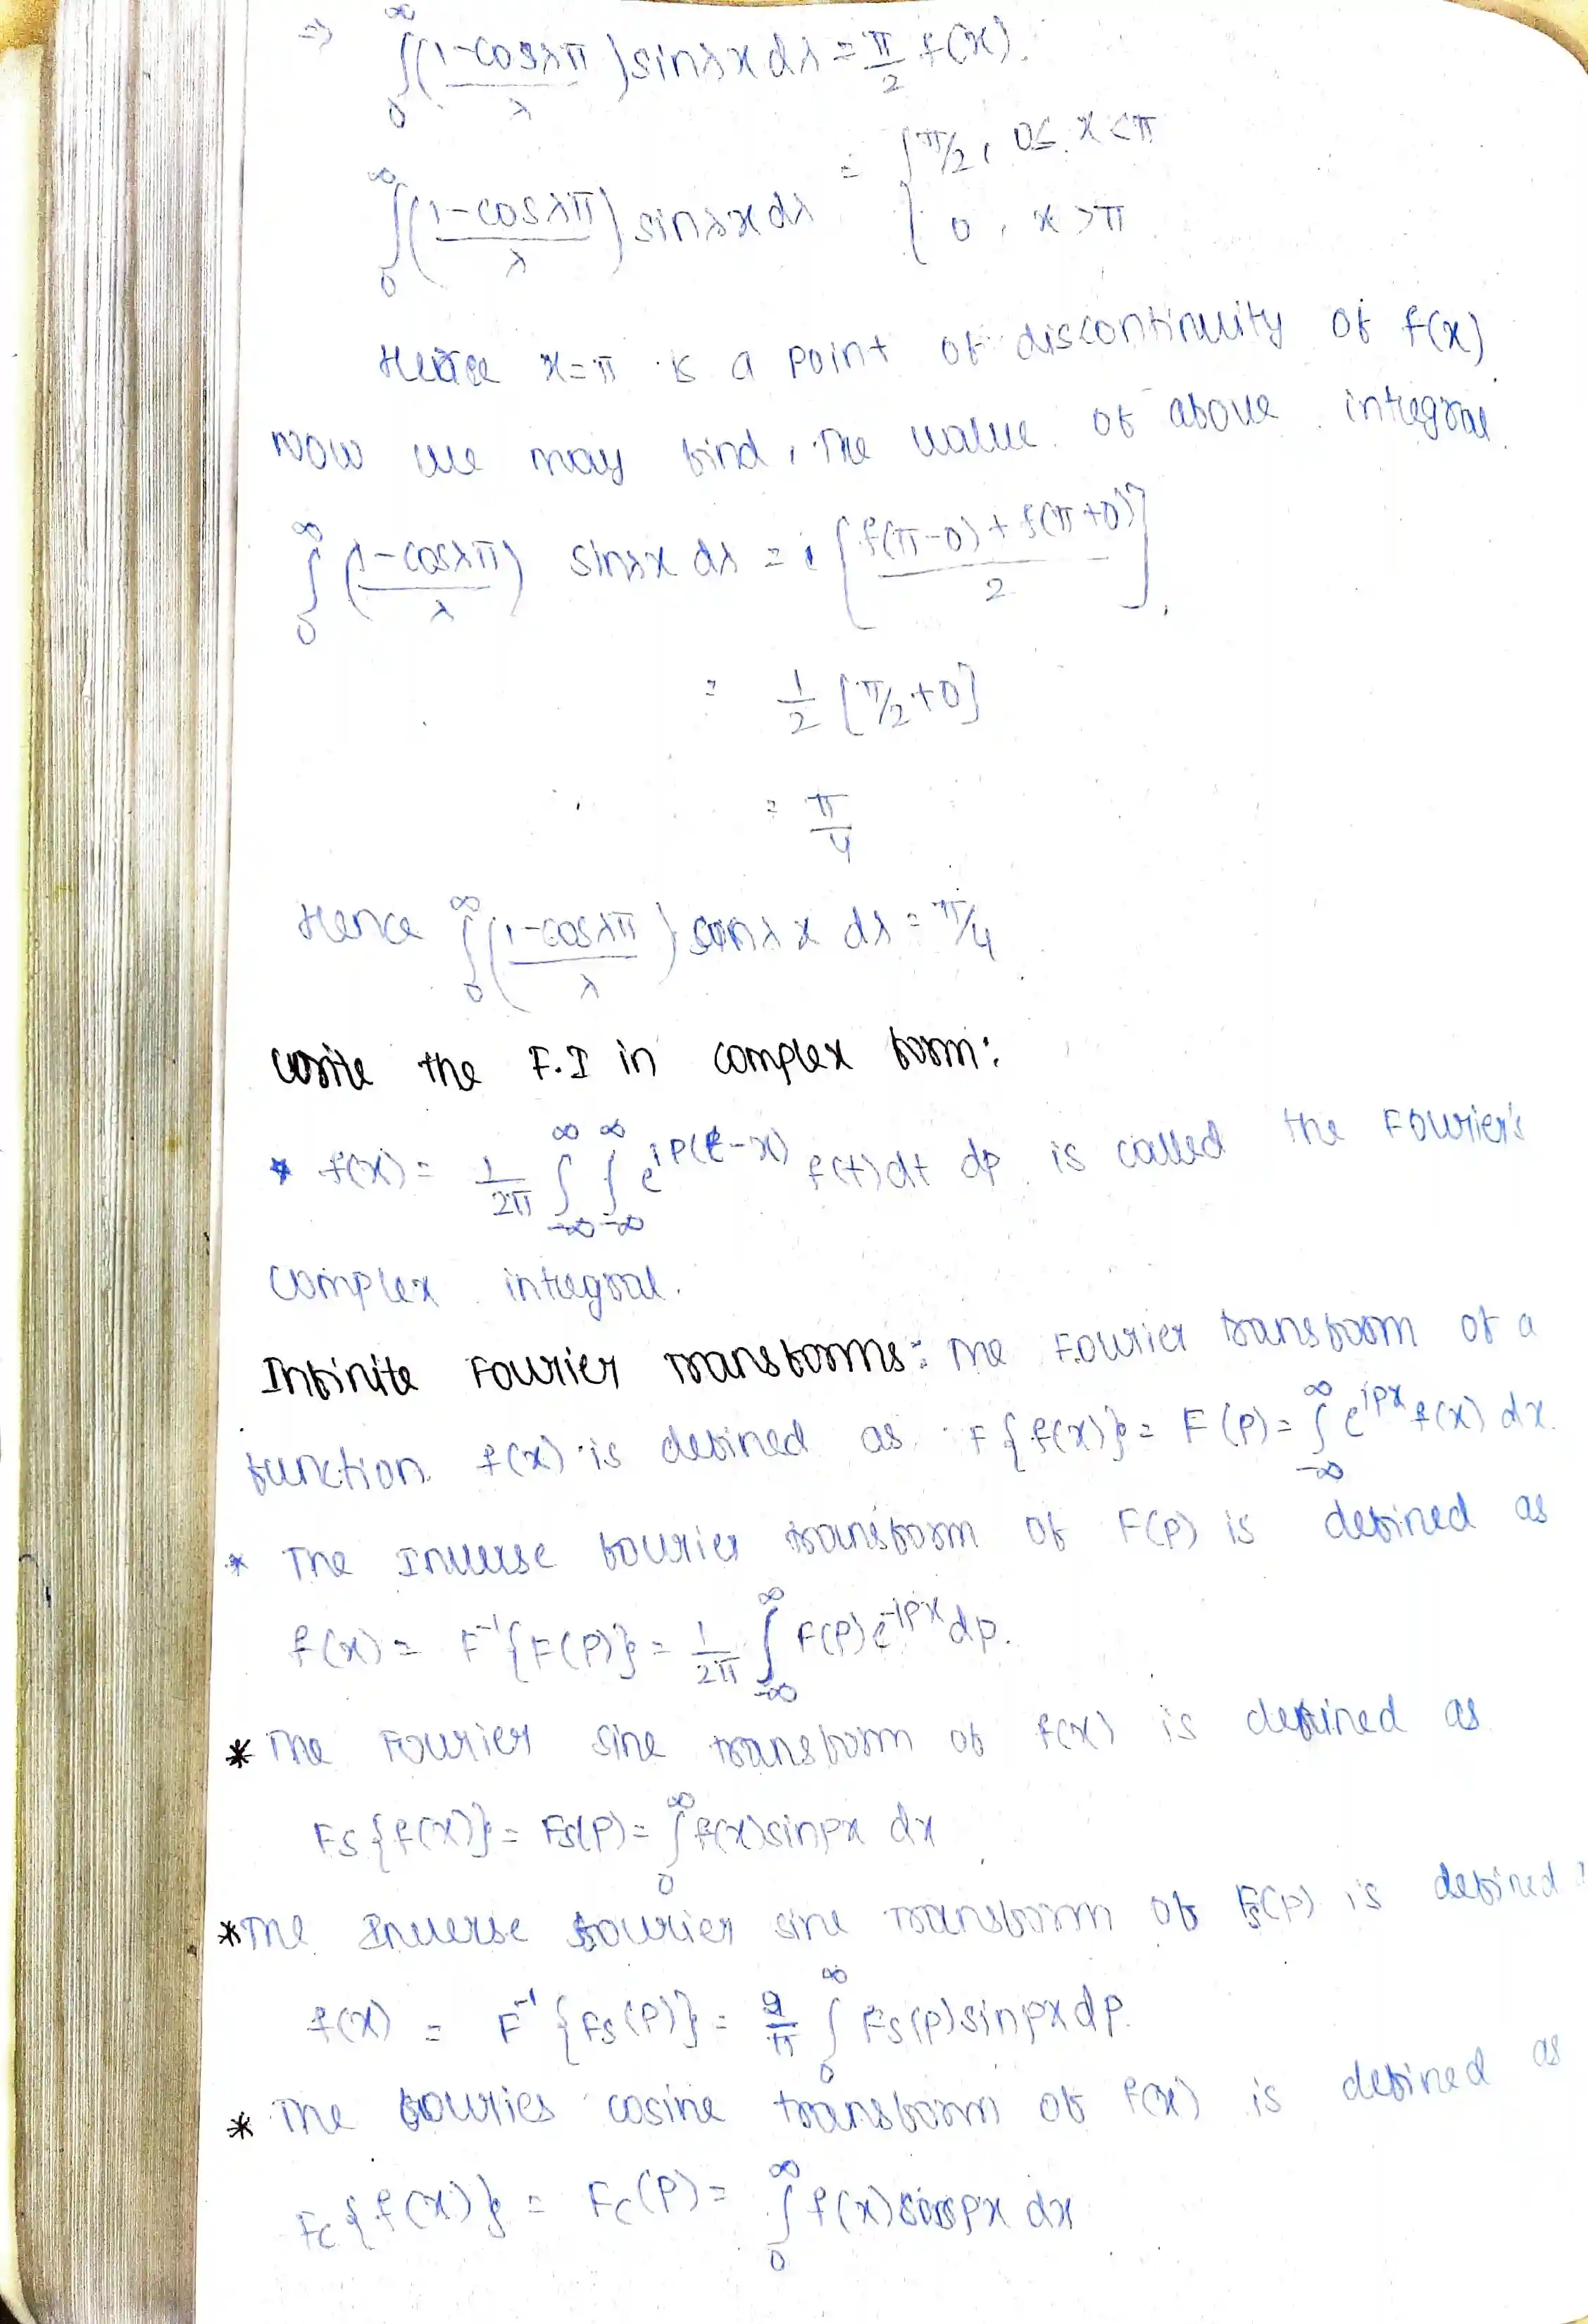 ⇒ ∫₀^∞ ((1-cosλπ)/λ) sinλx dλ = π/2 f(x).
∫₀^∞ ((1-cosλπ)/λ) sinλx dλ = { π/2, 0≤ x <π
0, x >π
x=π is a point of discontinuity of f(x)
Now we may find, The value of above integral.
∫₀^∞ ((1-cosλπ)/λ) sinλx dλ = [ (f(π-0) + f(π+0))/2 ].
= 1/2 [π/2+0]
= π/4
Hence ∫₀^∞ ((1-cosλπ)/λ) sinλx dλ = π/4
Write the F.I in complex form:
* f(x) = 1/2π ∫_-∞^∞ ∫_-∞^∞ e^ip(t-x) f(t)dt dp is called the Fourier's
complex integral.
Infinite Fourier Transforms: The Fourier transform of a
function f(x) is defined as F{f(x)} = F(p) = ∫_-∞^∞ e^ipx f(x) dx.
* The Inverse fourier transform of F(p) is defined as
f(x) = F⁻¹{F(p)} = 1/2π ∫_-∞^∞ F(p)e^-ipx dp.
* The Fourier sine transform of f(x) is defined as
Fs{f(x)} = Fs(p) = ∫₀^∞ f(x)sinpx dx
* The Inverse fourier sine Transform of Fs(p) is defined
f(x) = F⁻¹{Fs(p)} = 2/π ∫₀^∞ Fs(p)sinpx dp.
* The fourier cosine transform of f(x) is defined as
Fc{f(x)} = Fc(p) = ∫₀^∞ f(x) px dx